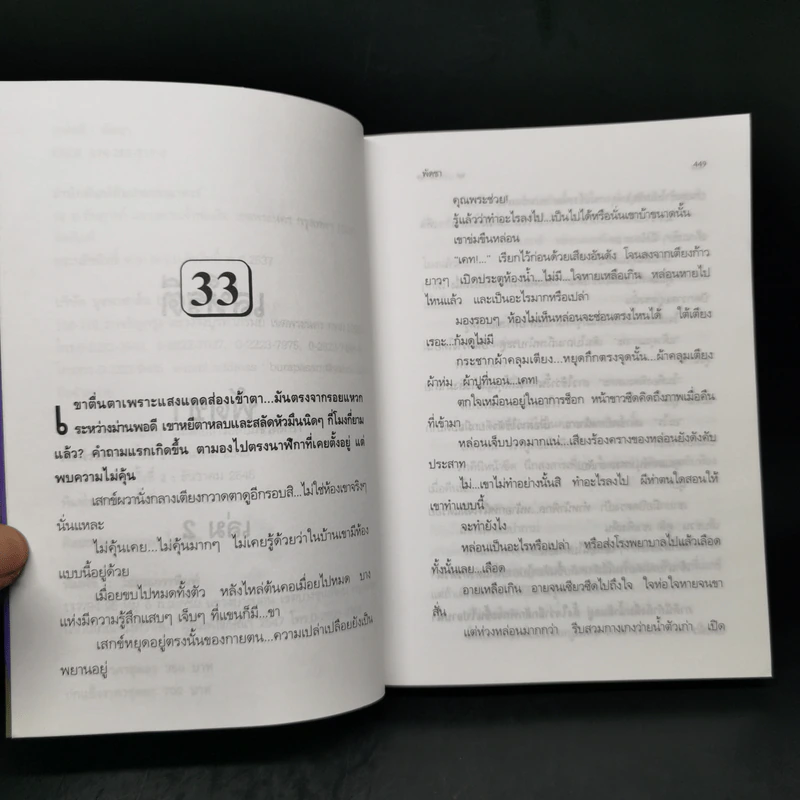 33
เขาตื่นตาเพราะแสงแดดส่องเข้าตา...มันตรงจากรอยแหวก
ระหว่างม่านพอดี เขาหยีตาหลบและสลัดหัวมึนนิดๆ กี่โมงกี่ยาม
แล้ว? คำถามแรกเกิดขึ้น ตามองไปตรงนาฬิกาที่เคยตั้งอยู่ แต่
พบความไม่คุ้น
เสกข์ผวานั่งกลางเตียงกวาดตาดูอีกรอบสิ...ไม่ใช่ห้องเขาจริงๆ
นั่นแหละ
ไม่คุ้นเคย...ไม่คุ้นมากๆ ไม่เคยรู้ด้วยว่าในบ้านเขามีห้อง
แบบนี้อยู่ด้วย
เมื่อยขบไปหมดทั้งตัว หลังไหล่ต้นคอเมื่อยไปหมด บาง
แห่งมีความรู้สึกแสบๆ เจ็บๆ ที่แขนก็มี...ขา
เสกข์หยุดอยู่ตรงนั้นของกายตน...ความเปล่าเปลือยยังเป็น
พยานอยู่
เล่ม 2
พัดชา
449
คุณพระช่วย!
รู้แล้วว่าทำอะไรลงไป...เป็นไปได้หรือนั่นเขาบ้าขนาดนั้น
เขาข่มขืนหล่อน
"เคท!..." เรียกไว้ก่อนด้วยเสียงอันดัง โจนลงจากเตียงก้าว
ยาวๆ เปิดประตูห้องน้ำ...ไม่มี...ใจหายเหลือเกิน หล่อนหายไป
ไหนแล้ว และเป็นอะไรมากหรือเปล่า
มองรอบๆ ห้องไม่เห็นหล่อนจะซ่อนตรงไหนได้ ใต้เตียง
เรอะ...ก้มดูไม่มี
กระชากผ้าคลุมเตียง...หยุดกึกตรงจุดนั้น...ผ้าคลุมเตียง
ผ้าห่ม ผ้าปูที่นอน...เคท!
ตกใจเหมือนอยู่ในอาการช็อก หน้าขาวซีดคิดถึงภาพเมื่อคืน
ที่เข้ามา
หล่อนเจ็บปวดมากแน่...เสียงร้องครางของหล่อนยังดังคับ
ประสาท
ไม่...เขาไม่ทำอย่างนั้นสิ ทำอะไรลงไป ผีห่าตนใดสอนให้
เขาทำแบบนี้
จะทำยังไง
หล่อนเป็นอะไรหรือเปล่า หรือส่งโรงพยาบาลไปแล้วเลือด
ทั้งนั้นเลย...เลือด
อายเหลือเกิน อายจนเซียวซีดไปถึงใจ ใจห่อใจหายจนขา
สั่น
แต่ห่วงหล่อนมากกว่า รีบสวมกางเกงว่ายน้ำตัวเก่า เปิด